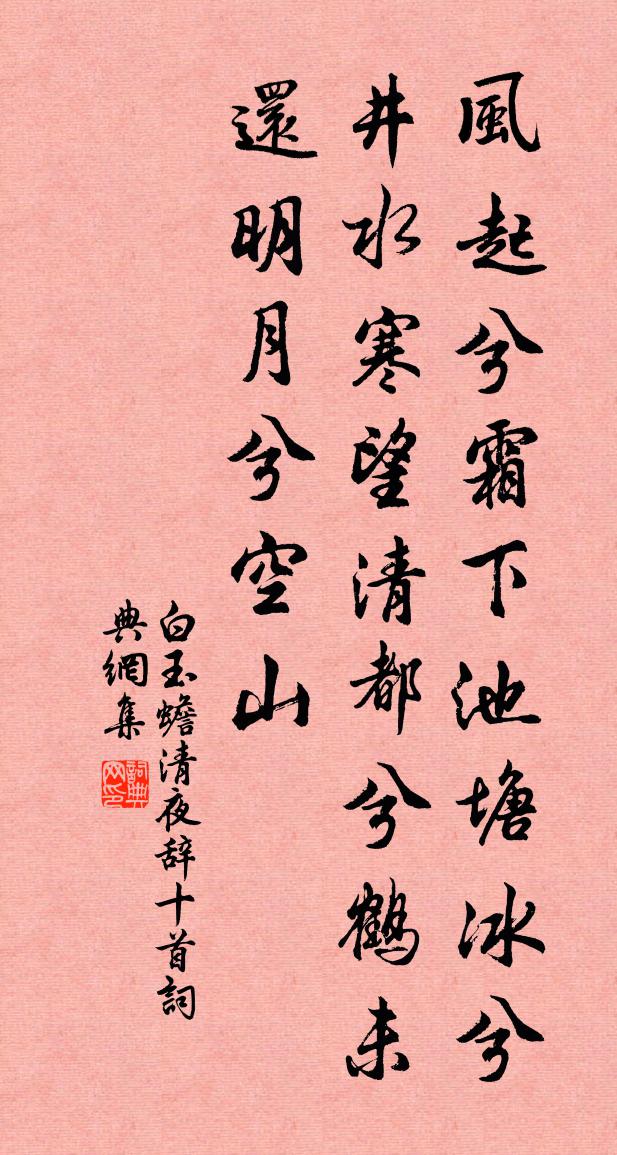 風起兮霜下池塘冰兮
井水寒望清都兮鶴未
還明月兮空山
白玉蟾清夜辞十首詞
典網集
詞典网印